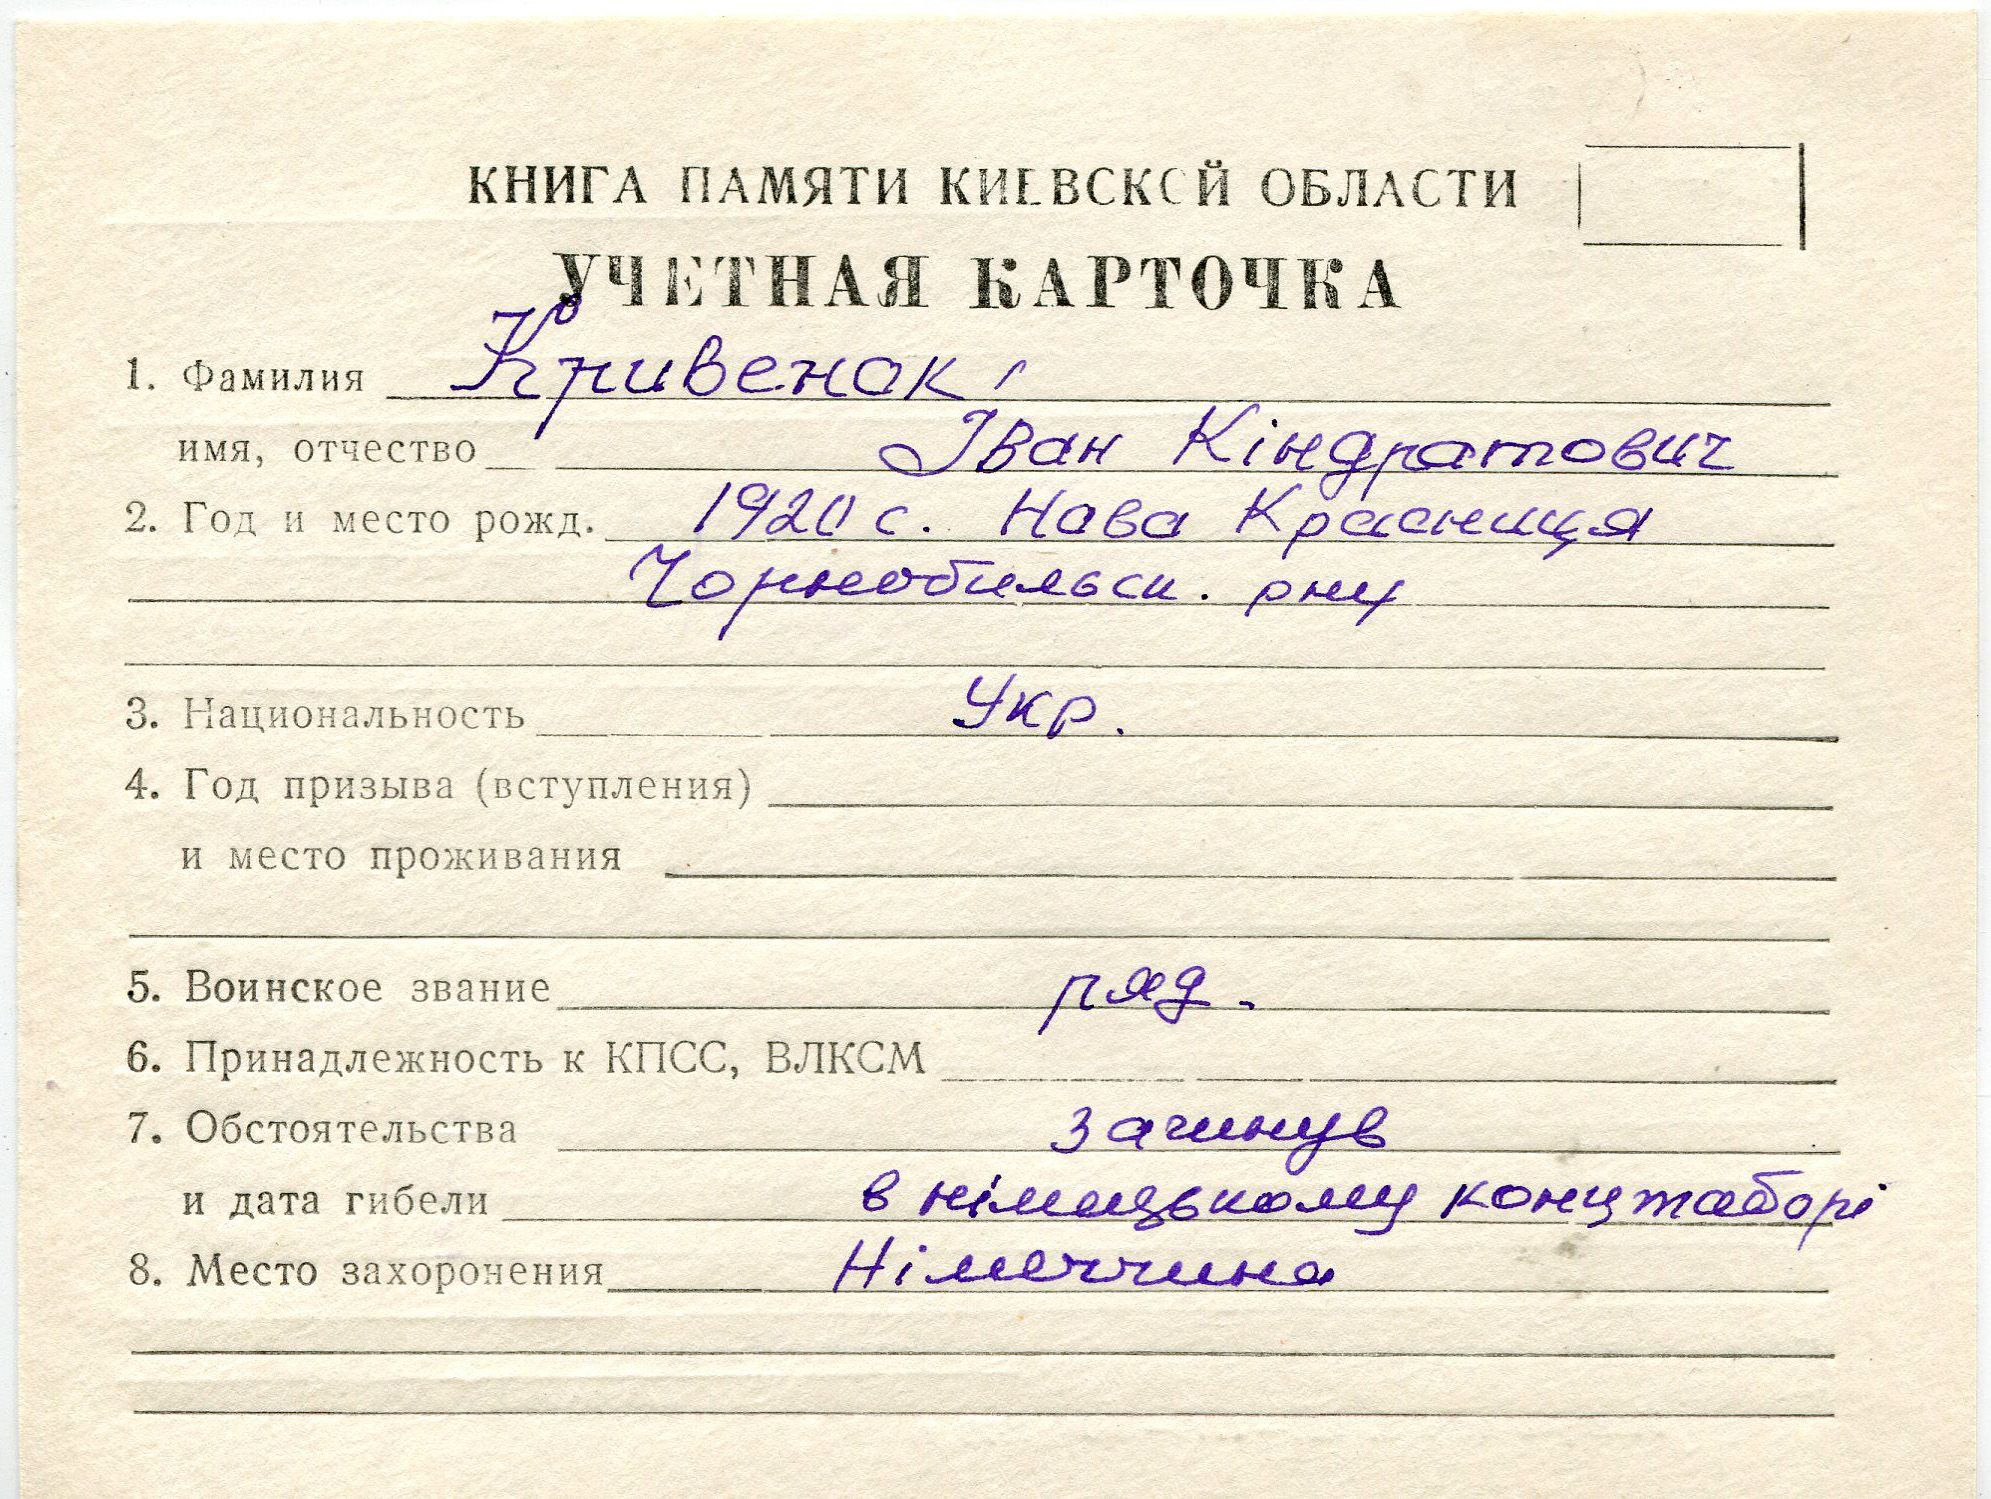 КНИГА ПАМЯТИ КИЕВСКОЙ ОБЛАСТИ
УЧЕТНАЯ КАРТОЧКА
1. Фамилия Кривенок,
имя, отчество Іван Кіндратович
2. Год и место рожд. 1920 с. Нова Красниця
Чорнобильск. рну
3. Национальность Укр.
4. Год призыва (вступления)
и место проживания
5. Воинское звание ряд.
6. Принадлежность к КПСС, ВЛКСМ
7. Обстоятельства загинув
и дата гибели в німецькому концтаборі
8. Место захоронения Німеччина